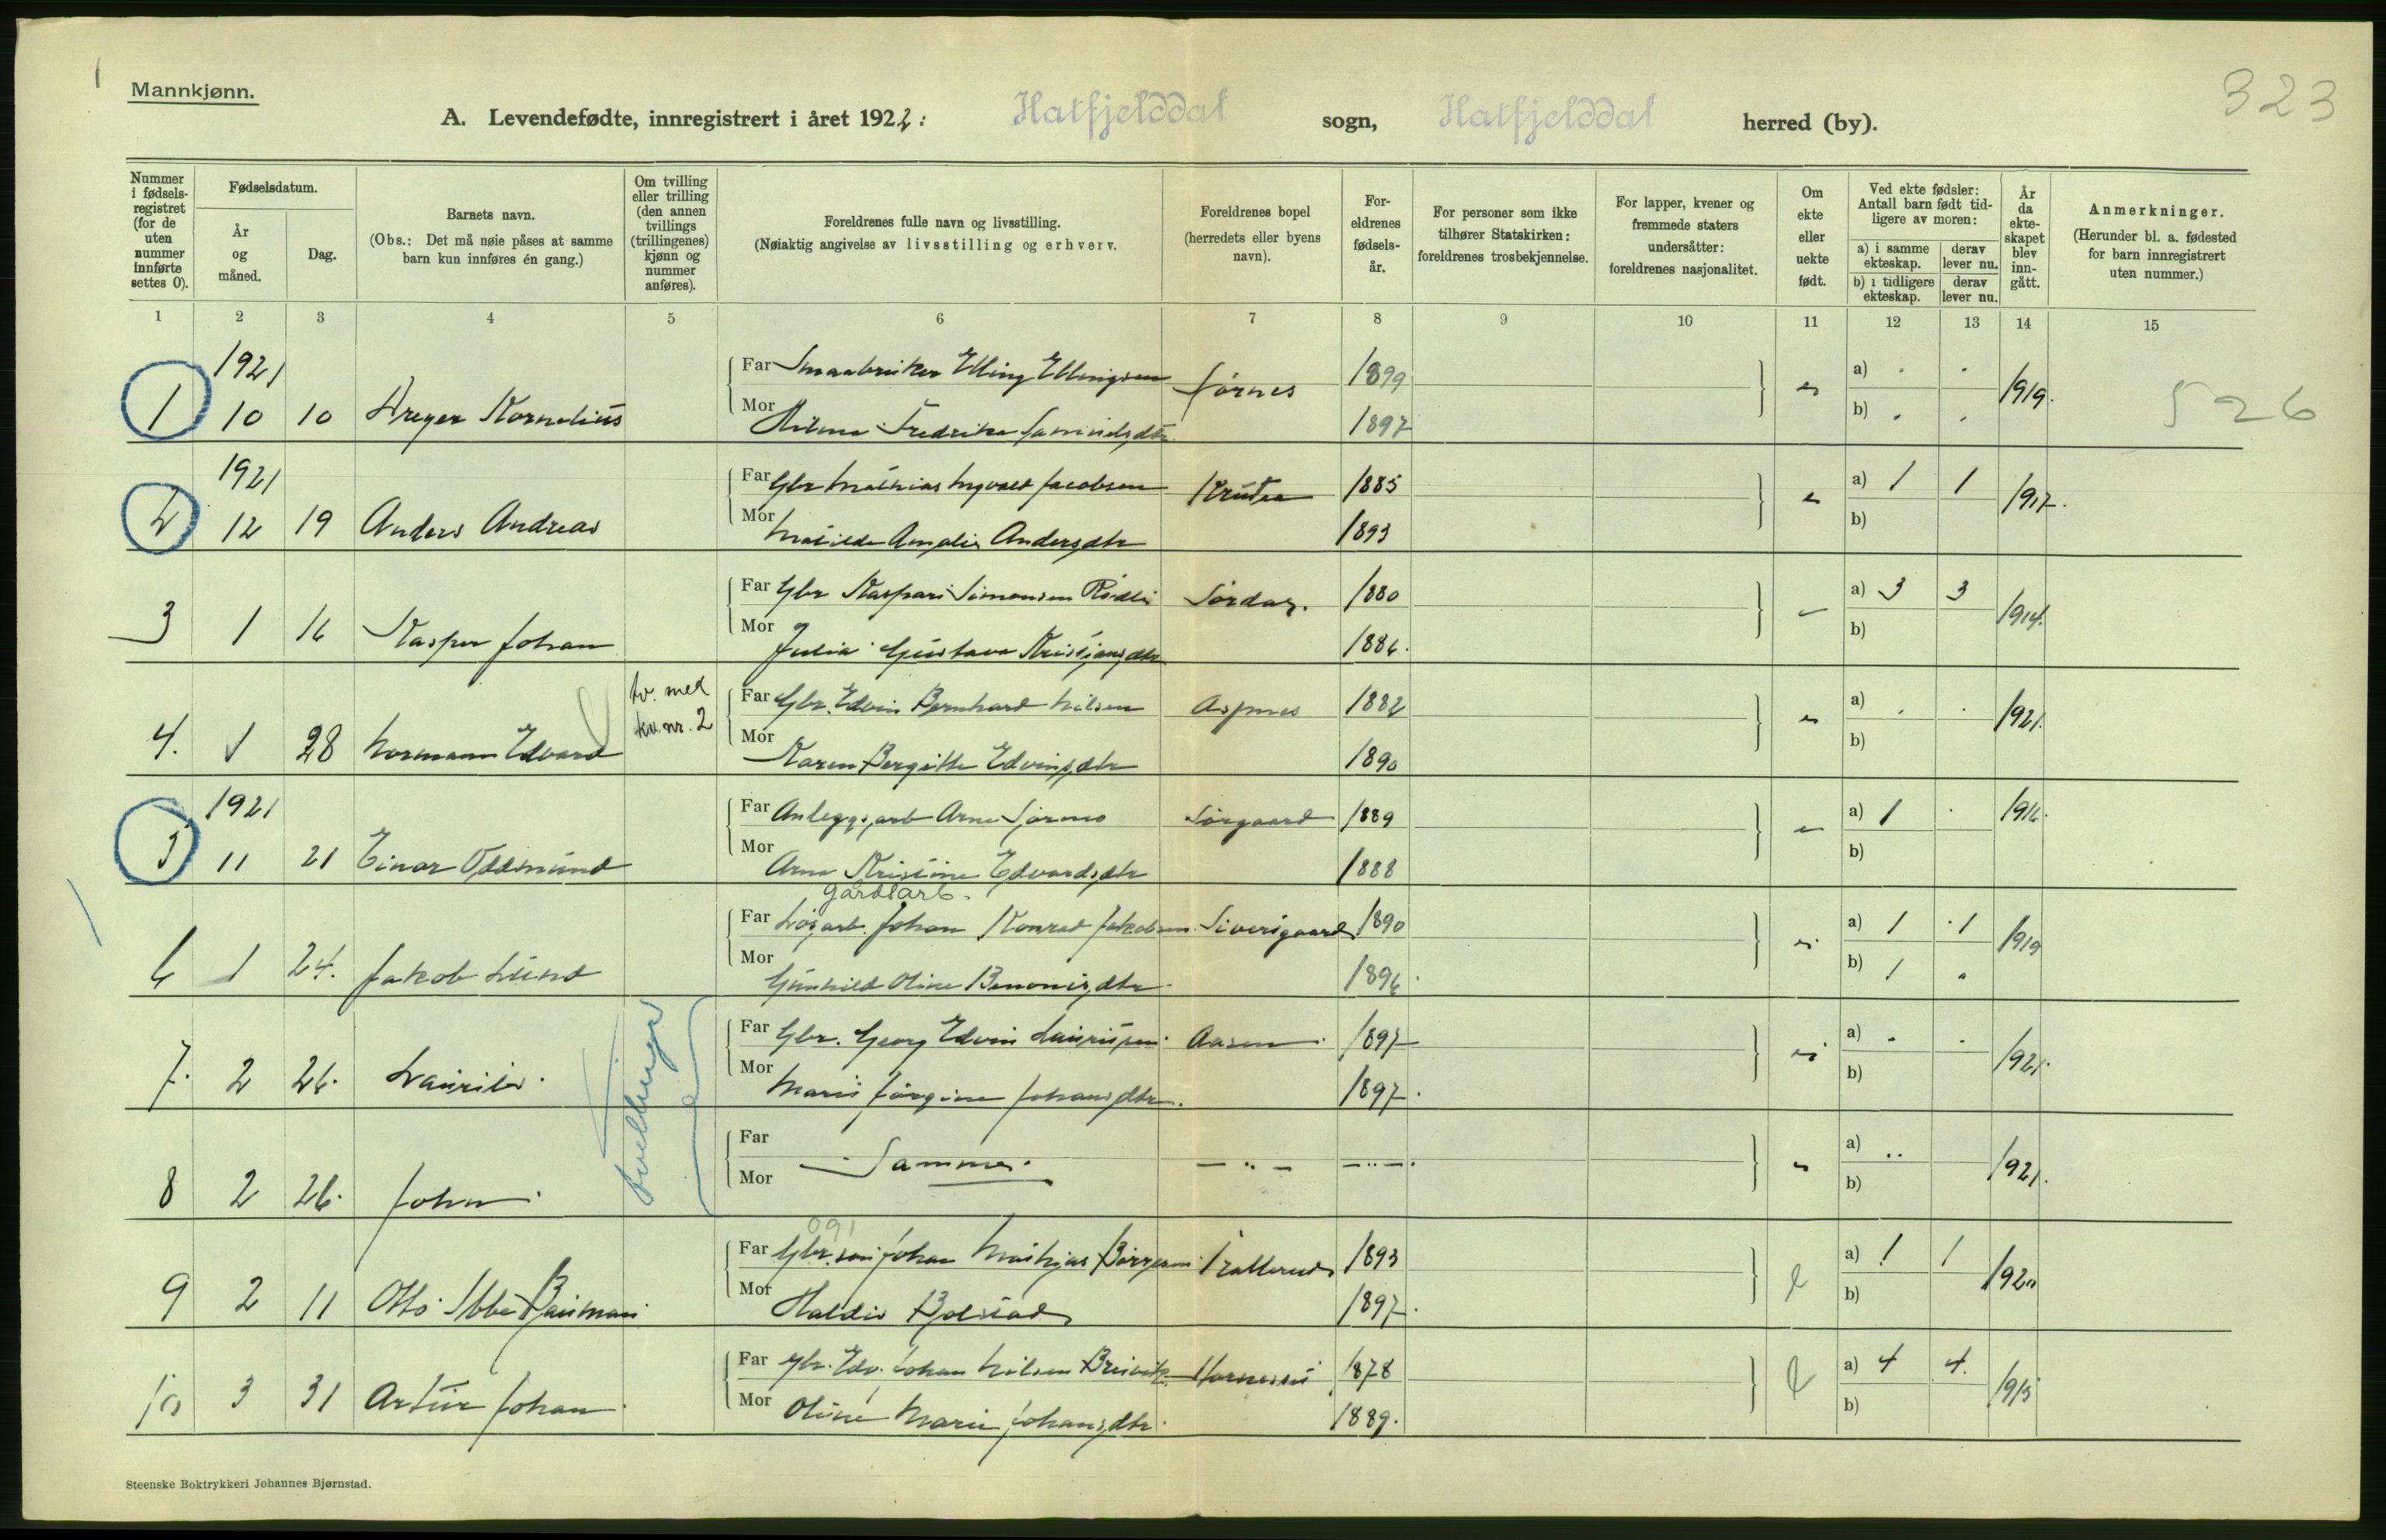 Mannkjønn.
323
A. Levendefødte, innregistrert i året 1922: Hatfjelddal sogn, Hatfjelddal herred (by).
Nummer i fødsels-registret (for de uten nummer innførte settes 0).
Fødselsdatum.
År og måned.
Dag.
Barnets navn.
(Obs.: Det må nøie påses at samme barn kun innføres én gang.)
Om tvilling eller trilling (den annen tvillings (trillingenes) kjønn og nummer anføres).
Foreldrenes fulle navn og livsstilling.
(Nøiaktig angivelse av livsstilling og erhverv.
Foreldrenes bopel (herredets eller byens navn).
For-eldrenes fødsels-år.
For personer som ikke tilhører Statskirken: foreldrenes trosbekjennelse.
For lapper, kvener og fremmede staters undersåtter: foreldrenes nasjonalitet.
Om ekte eller uekte født.
Ved ekte fødsler: Antall barn født tid-ligere av moren:
a) i samme ekteskap.
derav lever nu.
b) i tidligere ekteskap.
derav lever nu.
År da ekte-skapet blev inn-gått.
Anmerkninger.
(Herunder bl. a. fødested for barn innregistrert uten nummer.)
1 2 3 4 5 6 7 8 9 10 11 12 13 14 15
1921
Far Smaabruker Elling Ellingsen 1899 a)
1 10 10 Dreyer Kornelius 1919. 526
Mor Hilma Fredrika 1897 b)
1921
Far Gbr Mathias Jacobsen 1885 a) 1 1
2 12 19 Anders Andreas 1917.
Mor Matilde Amalia Andersdtr 1893 b)
Far Gbr Kaspar Simonsen 1880 a) 3 3
3 1 16 Kasper Johan 1914.
Mor Julia Gustava Kristjansdtr 1886. b)
tv. med kv. nr. 2
Far Gbr. Edvin Bernhard Nilsen Aspnes 1882 a)
4. 1 28 Normann Edvard 1921.
Mor Karen Bergitte Edvinsdtr 1890 b)
1921
Far Anleggsarb Arne Sørgaard 1889 a) 1 1916.
5 11 21 Einar Oddmund
Mor Arna Kristine Edvardsdtr 1888 b)
gårdsarb.
Far Løsarb. Johan Konrad Jakobsen. Sivertgaard 1890 a) 1 1
6 1 24. Jakob Lund 1919
Mor Gunhild Oline Benonisdtr. 1896. b) 1
Far Gbr. Georg Edvin Lauritsen. Aasen. 1897 a)
7. 2 26. Laurits. tvillinger 1921.
Mor Maria Jørgine Johansdtr. 1897. b)
Far a)
8 2 26. John. Samme. 1921.
Mor b)
091
Far Gbr. søn Johan Mathias Børgesen 1893 a) 1 1
9 2 11 Otto Ebbe 1920
Mor Haldis 1897. b)
Far Gbr. Edv. Johan Nilsen Breivik 1878 a) 4 4.
10 3 31 Artur Johan 1915
Mor Oline Marie Johansdtr. 1889. b)
Steenske Boktrykkeri Johannes Bjørnstad.